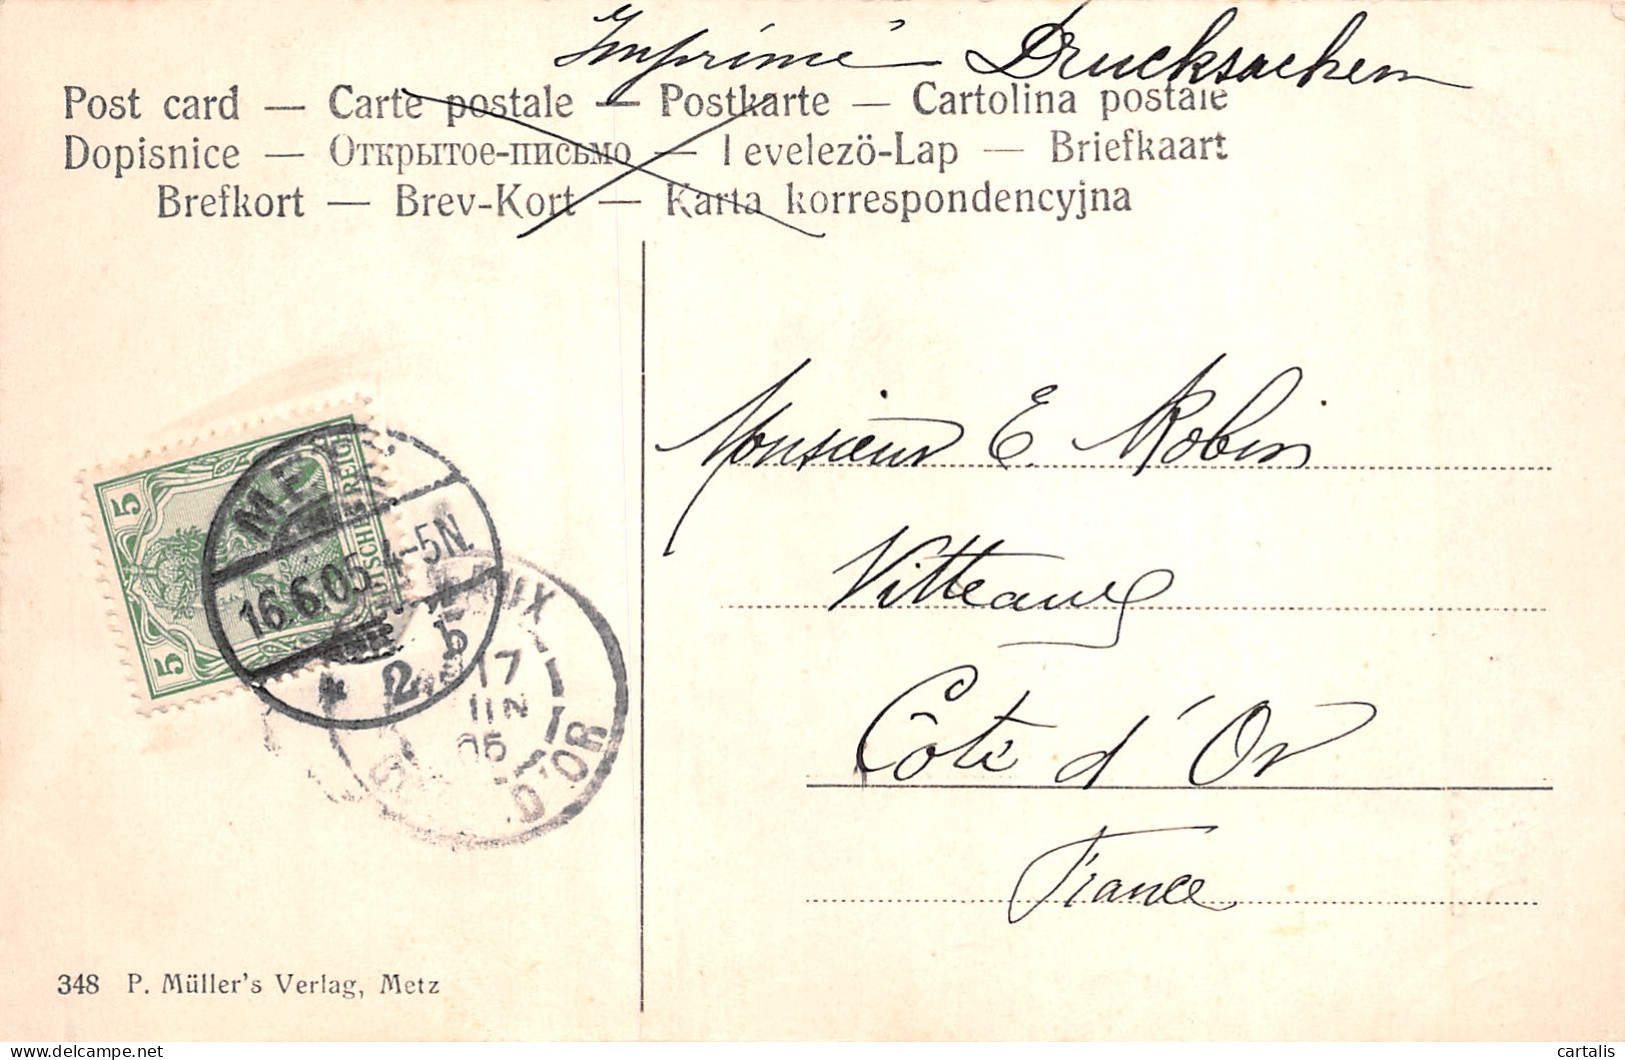 Imprimé Drucksachen
Post card — Carte postale — Postkarte — Cartolina postale
Dopisnice — Открытое-письмо — Levelezö-Lap — Briefkaart
Brefkort — Brev-Kort — Karta korrespondencyjna
Monsieur E. Robin
Vitteaux
Côte d'Or
France
5
5
DEUTSCHES REICH
METZ
16.6.05.4-5N.
* 2 b
17
JUIN
05
D'OR
348 P. Müller's Verlag, Metz
delcampe.net
cartalis